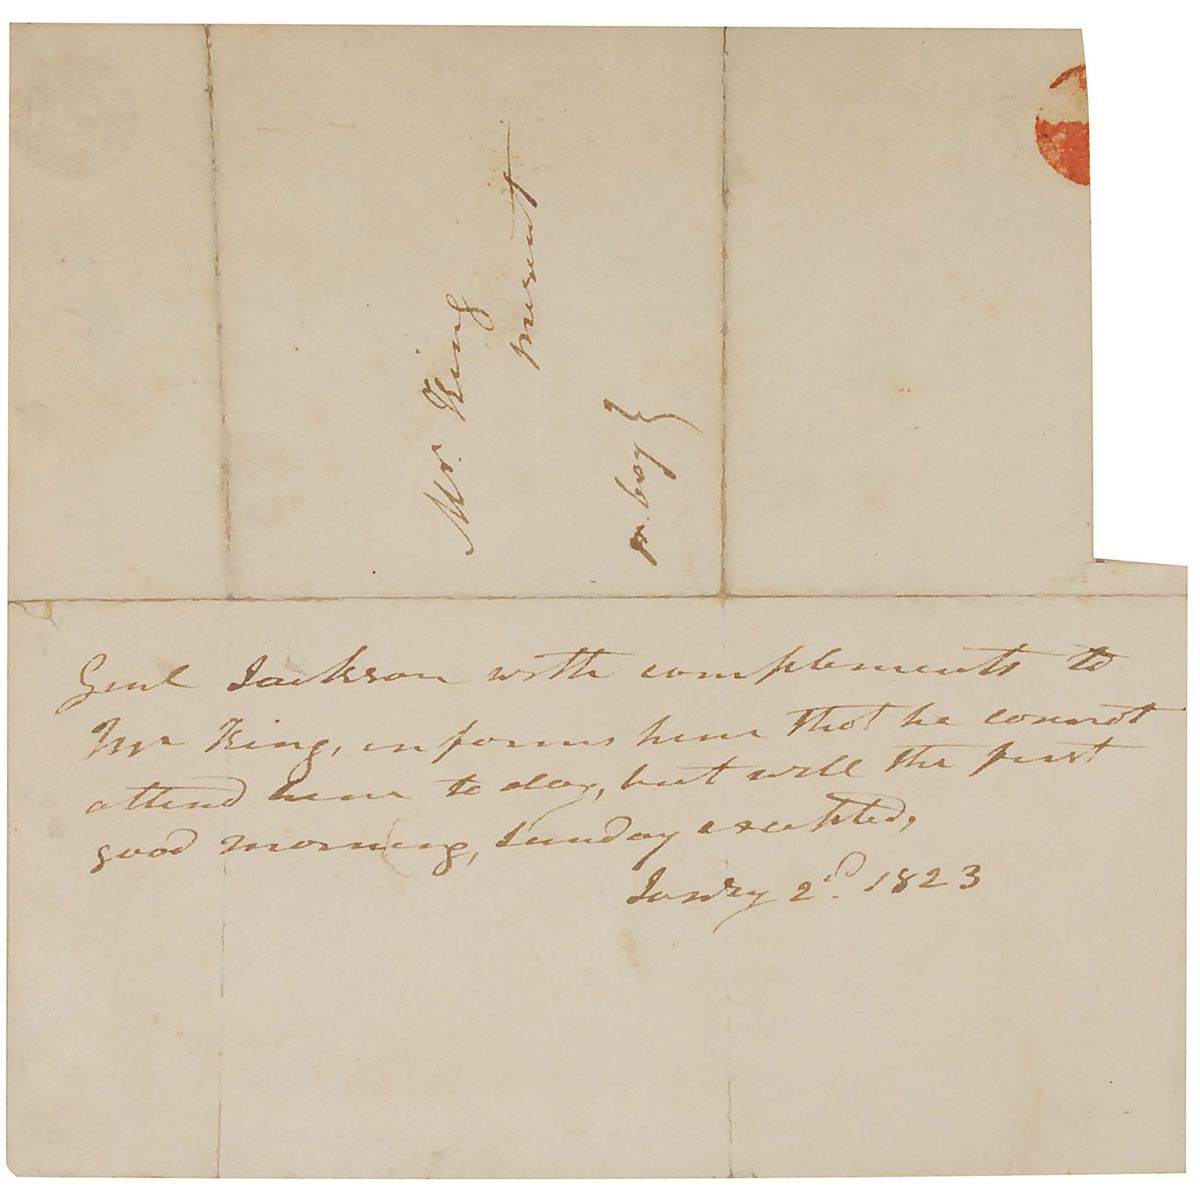 Mr. King
present
pr. boy }
Genl Jackson with complements to
Mr King, informs him that he cannot
attend him to day, but will the first
good morning, Sunday excepted,
Janry 2d. 1823